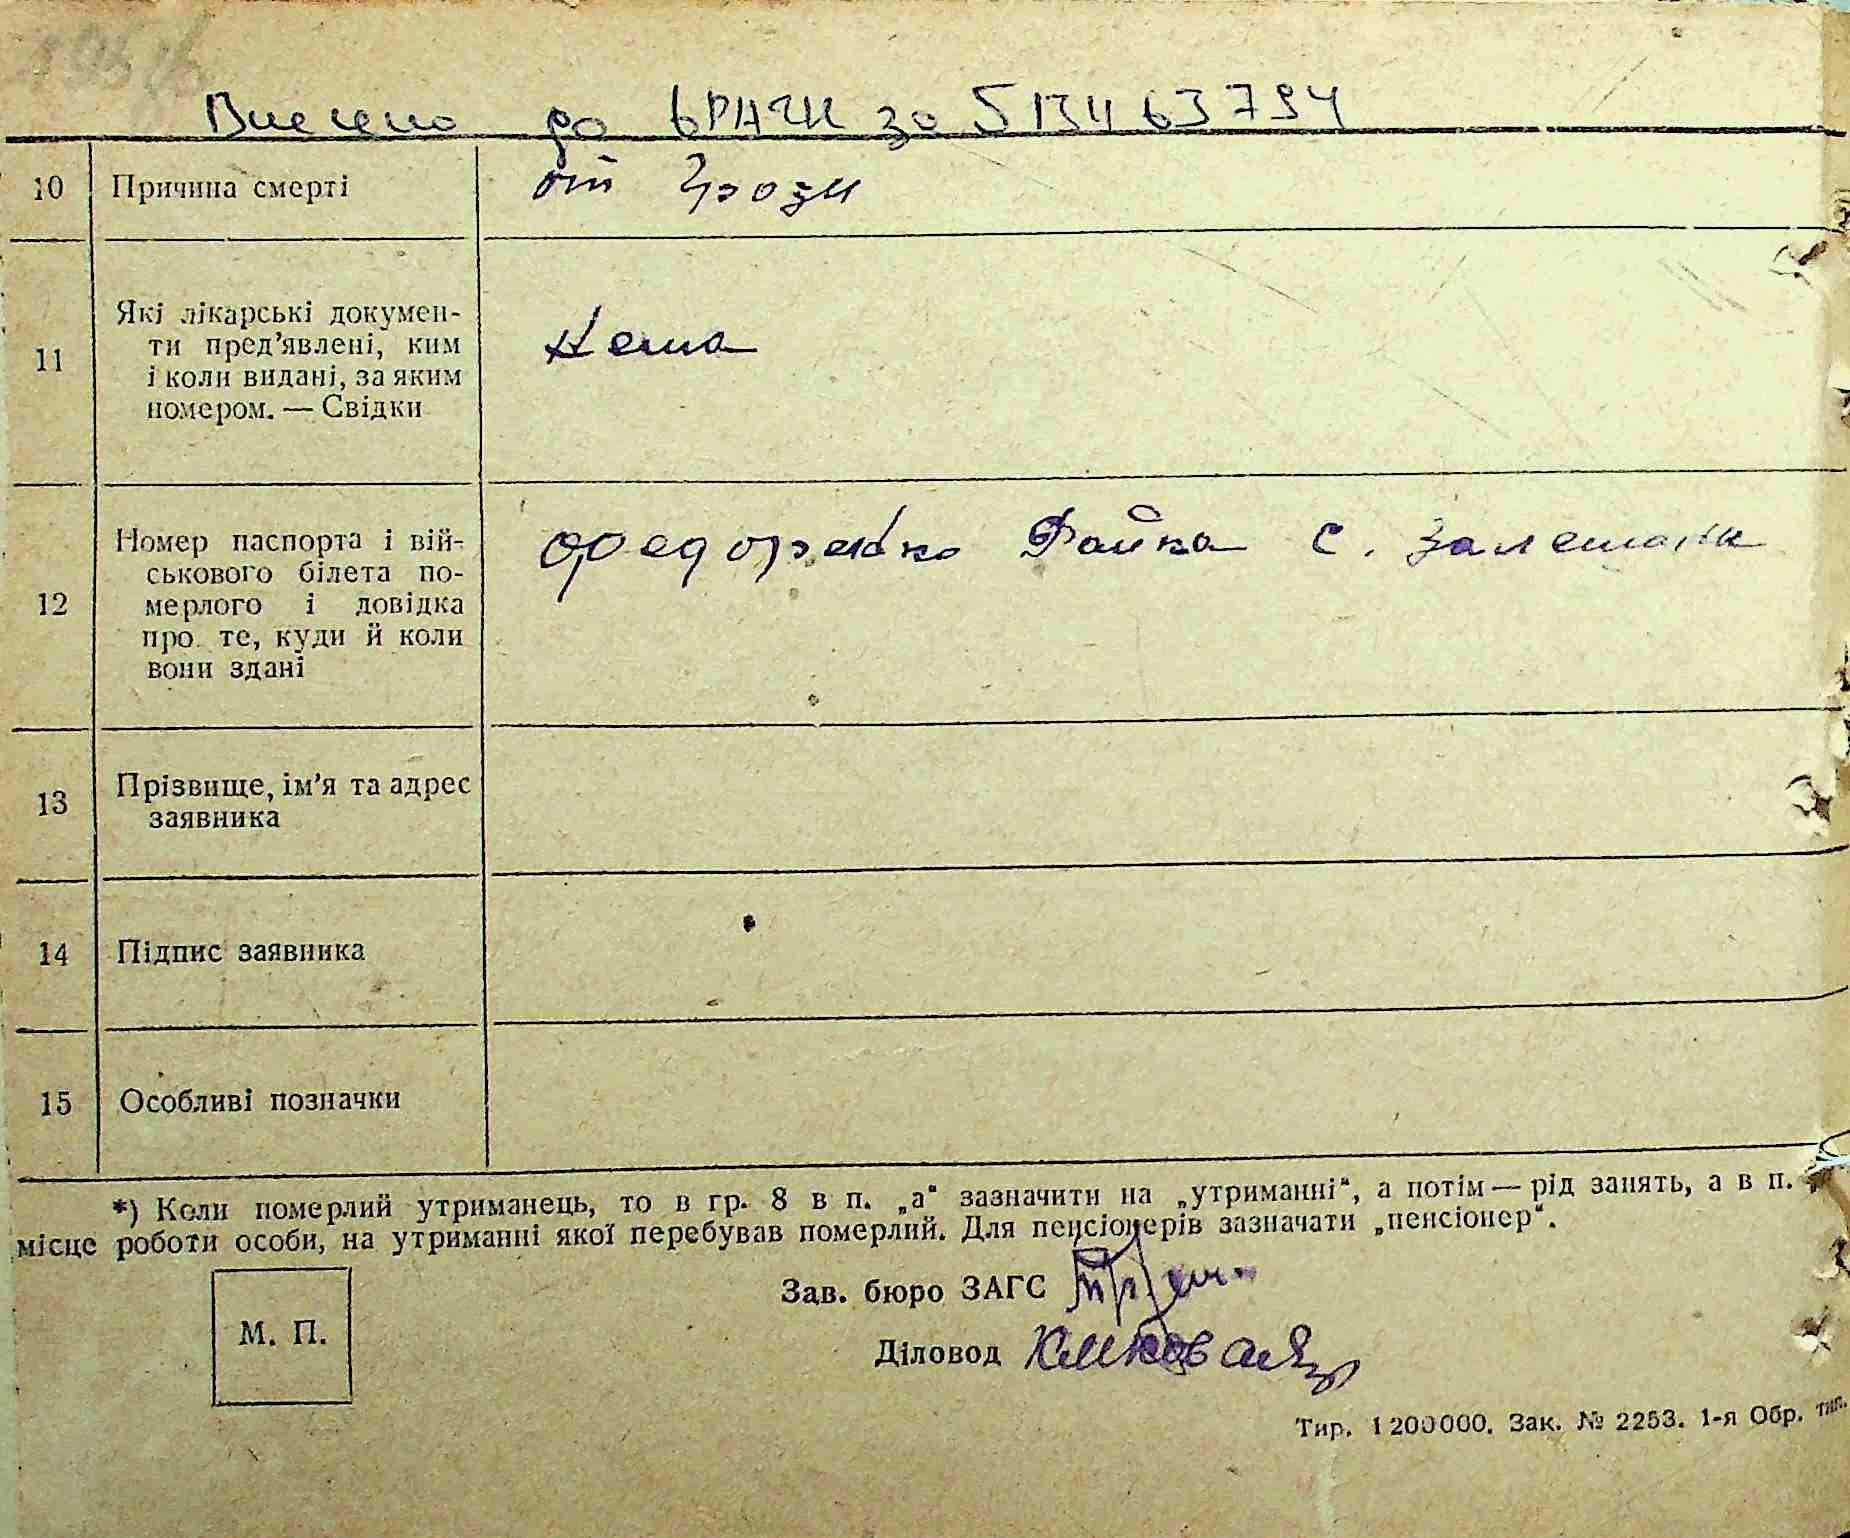 Внесено до ДРАЦС за 513463794
10 Причина смерті от грози
11 Які лікарські докумен-
ти пред’явлені, ким
і коли видані, за яким
номером. — Свідки
нема
12 Номер паспорта і вій-
ськового білета по-
мерлого і довідка
про те, куди й коли
вони здані
Федоренко с.
13 Прізвище, ім’я та адрес
заявника
14 Підпис заявника
15 Особливі позначки
*) Коли померлий утриманець, то в гр. 8 в п. „а“ зазначити на „утриманні“, а потім — рід занять, а в п.
місце роботи особи, на утриманні якої перебував померлий. Для пенсіонерів зазначати „пенсіонер“.
Зав. бюро ЗАГС
М. П.
Діловод
Тир. 1 200 000. Зак. № 2253. 1-я Обр. тип.